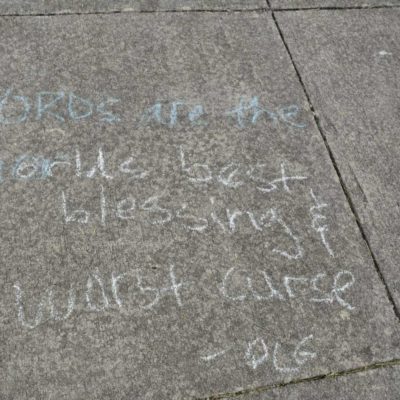 WORDs are the
worlds best
blessing &
worst curse
- DLG